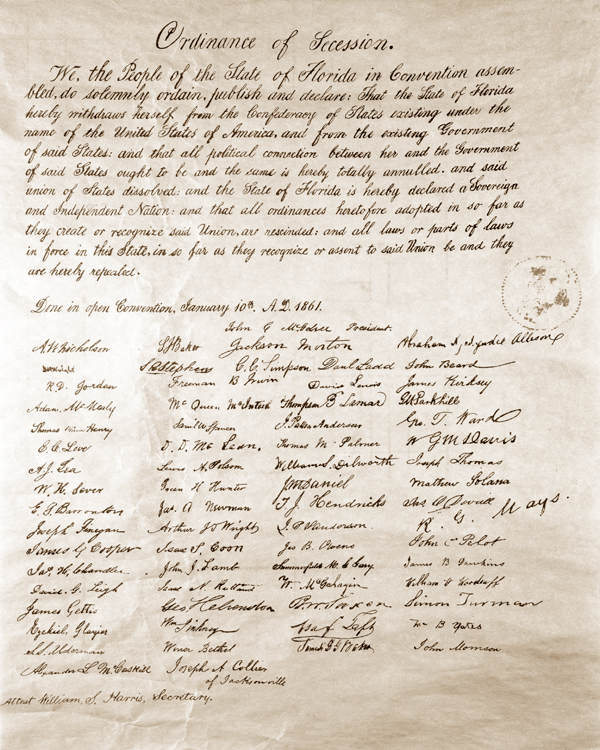 Ordinance of Secession.
We, the People of the State of Florida in Convention assem-
bled, do solemnly ordain, publish and declare: That the State of Florida
hereby withdraws herself from the Confederacy of States existing under the
name of the United States of America, and from the existing Government
of said States: and that all political connection between her and the Government
of said States ought to be and the same is hereby totally annulled. and said
union of States dissolved: and the State of Florida is hereby declared a Sovereign
and Independent Nation: and that all ordinances heretofore adopted in so far as
they create or recognize said Union, are rescinded: and all laws or parts of laws
in force in this State, in so far as they recognize or assent to said Union be and they
are hereby repealed.
Done in open Convention, January 10th A.D. 1861.
John C President.
A W Nicholson Baker Jackson Morton Abraham Allison
Stephens C. C. Simpson Ladd John Beard
R. D. Jordan Freeman B Davis James Kirksey
Adam McQueen McIntosh Thompson B Lamar Parkhill
Thomas Henry Spencer J Patton Anderson Geo. T. Ward
E. E. Love Thomas M Palmer W G M Davis
A. J. Lea Lewis A. Folsom William S. Dilworth Joseph Thomas
W. H. Sever Isaac H Hunter Daniel Mathew Solana
E. P. Barrington Jas. A Newman T. J. Hendricks
Joseph Finegan Arthur J T Wright Henderson R. G. Mays.
James G Cooper Isaac S. Coon Jas B Owens John C Pelot
Jas. H. Chandler John J. Lamb James B Dawkins
David G. Leigh Isaac N. Rutland W. McGahagin William Woodruff
James Gettis Geo Helvenston Simon Turman
Ezekiel Glazier Wm Pinkney Wm B Yates
S. S. Alderman Winer Bethel John Morrison
Alexander L McCaskill Joseph A Collier
of Jacksonville
Attest William S. Harris, Secretary.